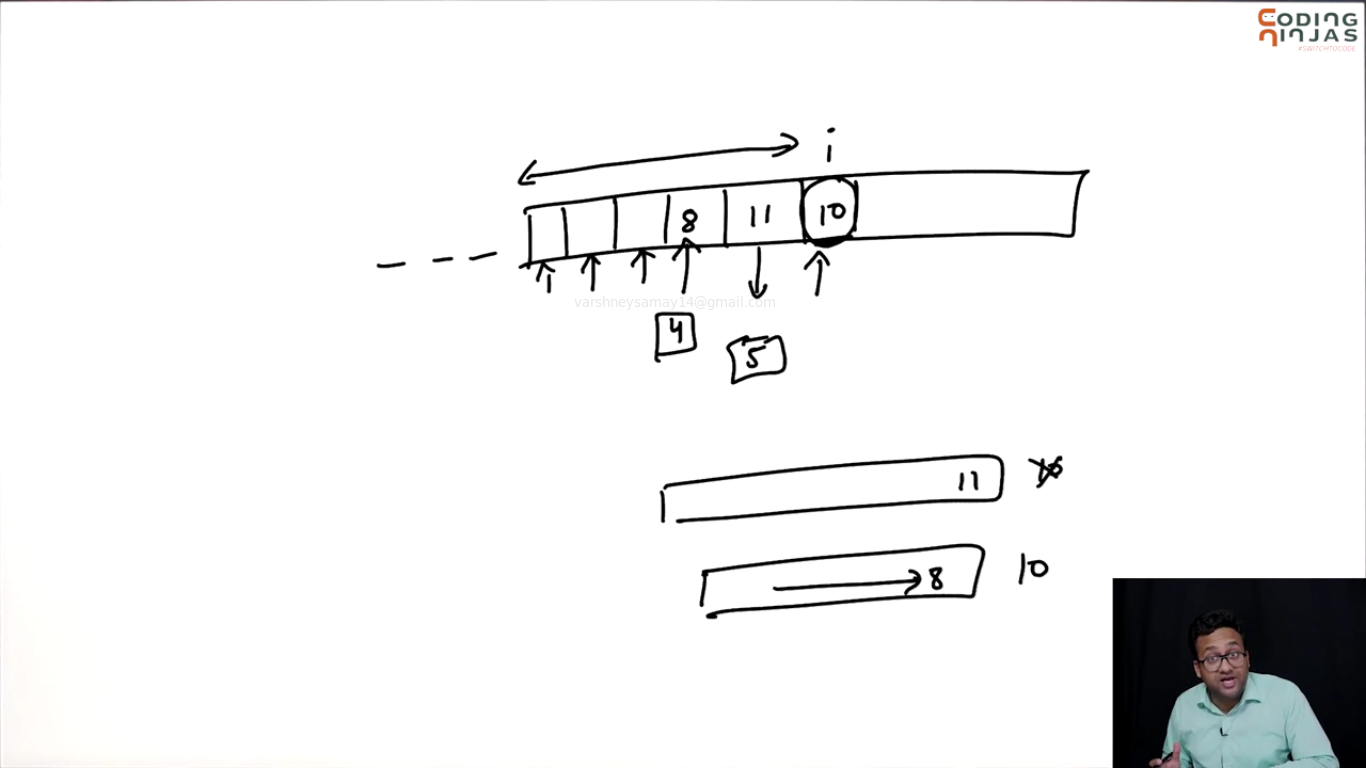 CODING
NINJAS
#SWITCHTOCODE
i
8 11 10
varshneysamay14@gmail.com
4
5
11
8 10